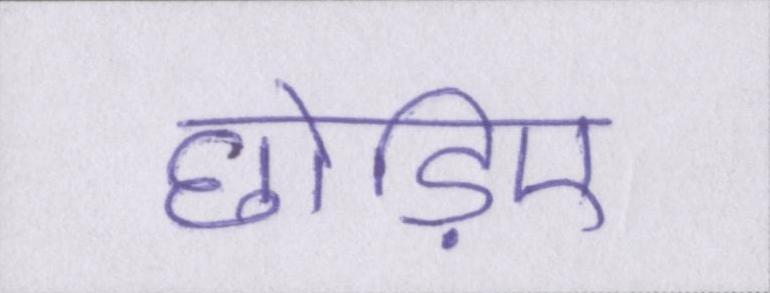 छोड़िए